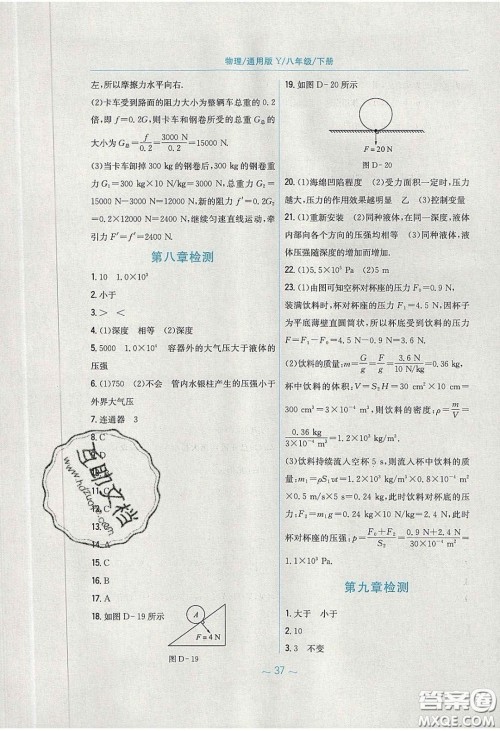 物理/通用版 Y/八年级/下册
左,所以摩擦力水平向右.
(2)卡车受到路面的阻力大小为整辆车总重的0.2
倍,即f=0.2G,则卡车和钢卷所受的总重力G总的
大小为G总=f/0.2=3000 N/0.2=15000 N.
(3)当卡车卸掉300 kg的钢卷后,一个钢卷的重力
G1=300 kg×10 N/kg=3000 N,总重力G2=
15000 N-3000 N=12000 N,新的阻力f′=0.2G2=
0.2×12000 N=2400 N,继续匀速直线运动,牵
引力F′=f′=2400 N.
第八章检测
1. 10 1.0×10³
2. 小于
3. > <
4. (1)深度 相等 (2)深度
5. 5000 1.0×10⁴ 容器外的大气压大于液体的
压强
6. (1)750 (2)不会 管内水银柱产生的压强小于
外界大气压
7. 连通器 3
8. C
12. C
13. C
14. A
15. C
16. C
17. A
18. 如图D-19所示
A
F=4 N
图D-19
19. 如图D-20所示
F=20 N
图D-20
20. (1)海绵凹陷程度 (2)受力面积一定时,压力
越大,压力的作用效果越明显 乙 (3)控制变量
21. (1)重新安装 (2)同种液体,在同一深度,液体
内部向各个方向的压强均相等 (3)同种液体,液
体压强随深度的增加而增加.
22. (1)5.5×10⁴ Pa (2)5 m
23. (1)由图可知空杯对杯座的压力F0=0.9 N,
装满饮料时,杯对杯座的压力F1=4.5 N,因杯子
为薄壁直圆筒状,所以杯底受到饮料的压力F=
F1-F0=4.5 N-0.9 N=3.6 N.
(2)饮料的质量:m=G/g=F/g=3.6 N/10 N/kg=0.36 kg,
杯中饮料的体积:V=S2H=30 cm²×10 cm=
300 cm³=3×10⁻⁴ m³,则饮料的密度:ρ=m/V=
0.36 kg/3×10⁻⁴ m³=1.2×10³ kg/m³.
(3)饮料持续流入空杯5 s,则流入杯中饮料的质
量:m1=ρV1=1.2×10³ kg/m³×40×10⁻⁶ m³/s×
5 s=0.24 kg,此时饮料对杯底的压力:
F2=m1g=0.24 kg×10 N/kg=2.4 N,此时
杯对杯座的压强:p=F0+F2/S2=0.9 N+2.4 N/30×10⁻⁴ m²=
1.1×10³ Pa.
第九章检测
1. 大于 小于
2. 10
3. 3 不变
~ 37 ~
互助文档
www.hdzuoye.com
答案圈
MXQE.COM